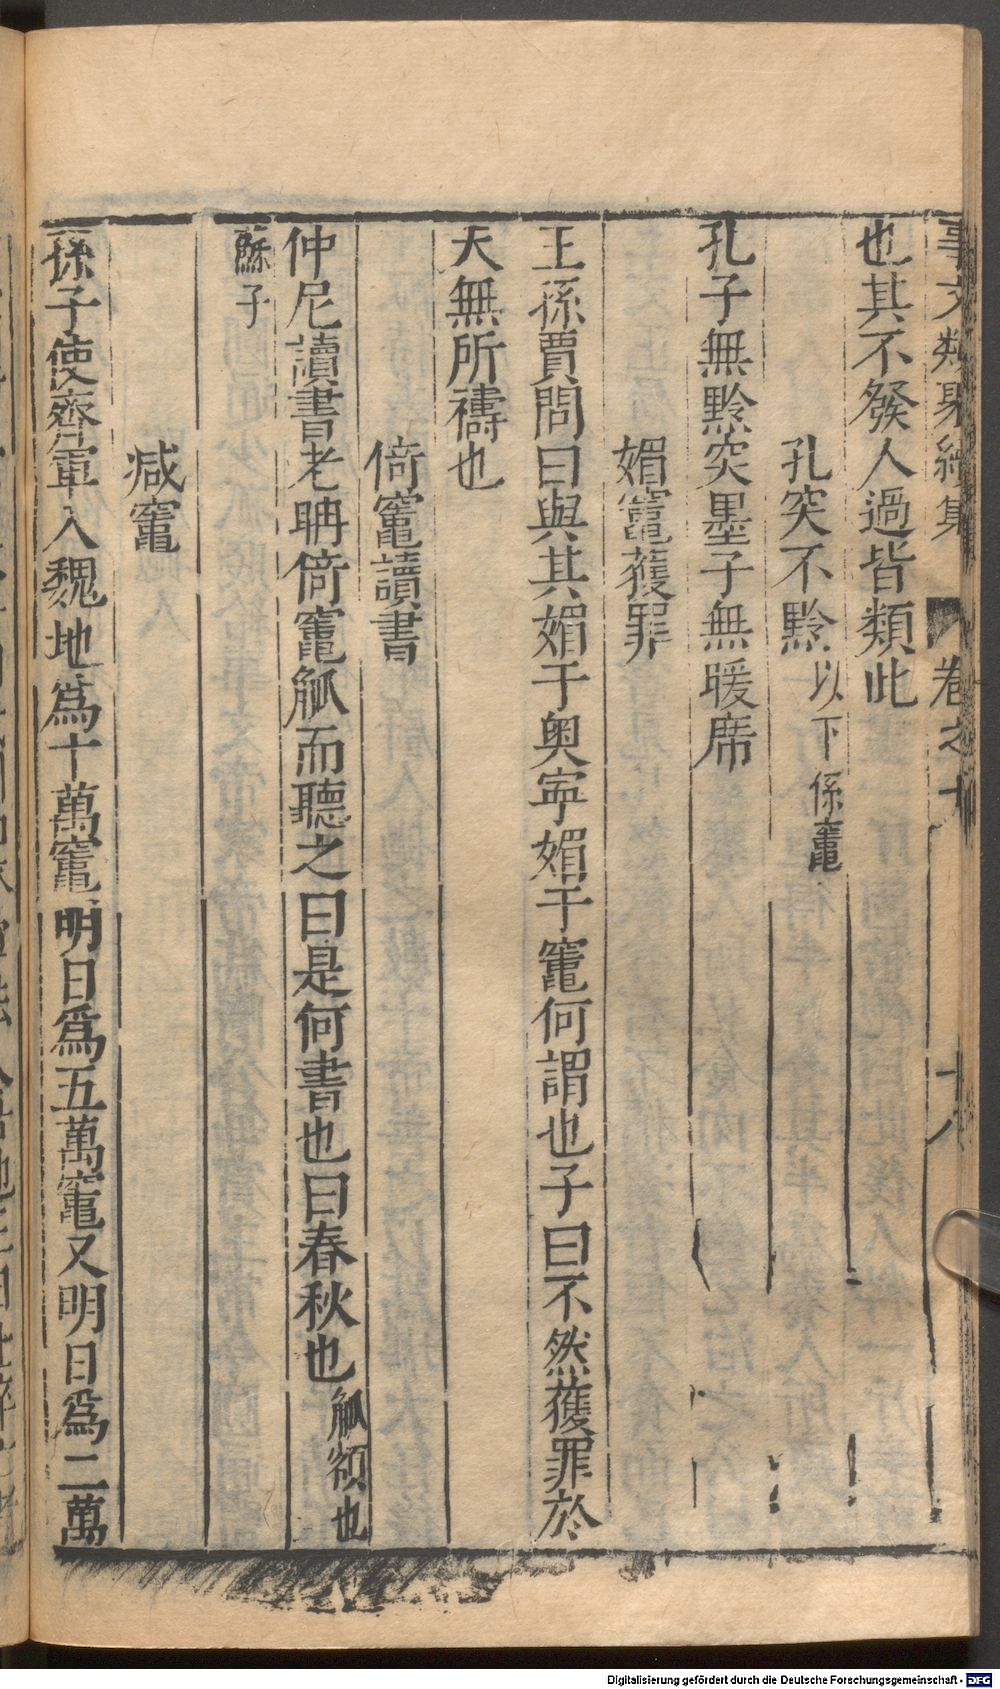 事文類聚續集 卷之十 十八
也其不發人過皆類此
孔突不黔 以下係竈
孔子無黔突墨子無暖席
媚竈獲罪
王孫賈問曰與其媚于奧寧媚于竈何謂也子曰不然獲罪於
天無所禱也
倚竈讀書
仲尼讀書老聃倚竈觚而聽之曰是何書也曰春秋也 觚額也
蘇子
减竈
孫子使齊軍入魏地爲十萬竈明日爲五萬竈又明日爲二萬
Digitalisierung gefördert durch die Deutsche Forschungsgemeinschaft - DFG